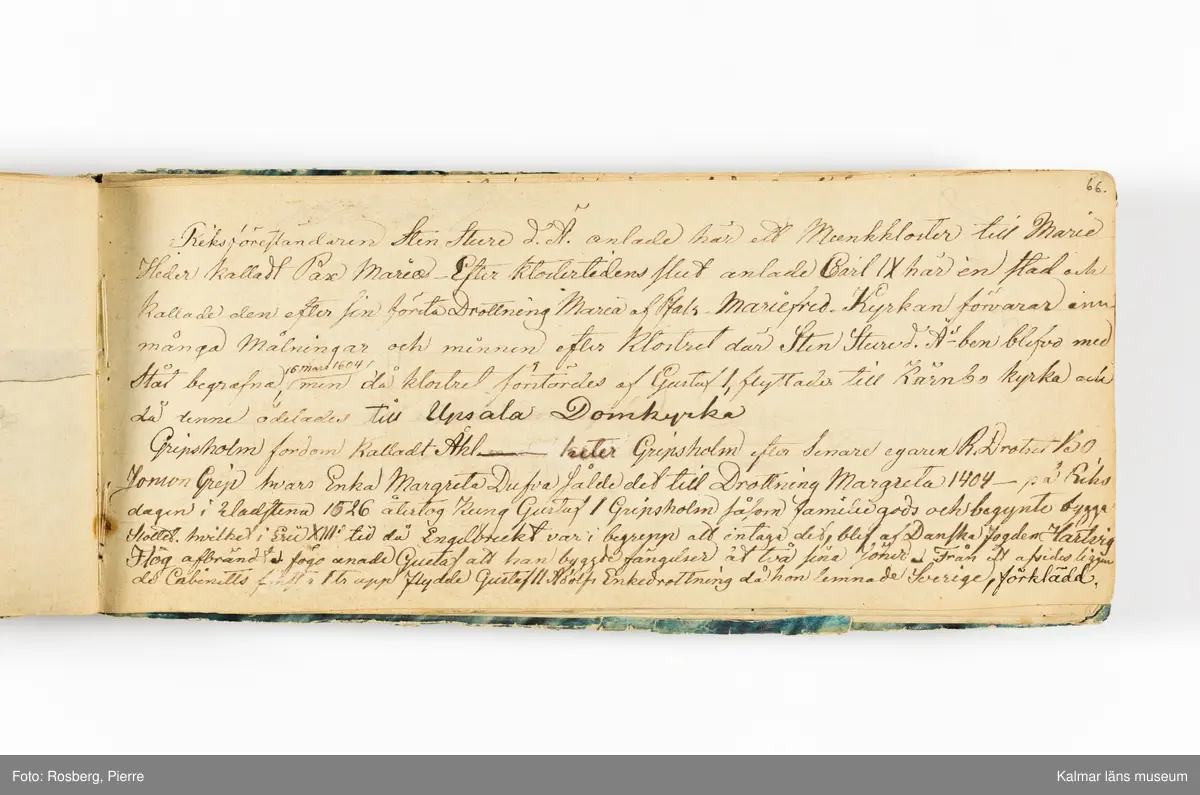 66.
Riksföreståndaren Sten Sture d. Ä. anlade här ett Munkkloster till Marie
Heder kalladt Pax Mariæ - Efter klostertidens slut anlade Carl IX här en stad och
kallade den efter sin första Drottning Maria af Pfalz - Mariefred - Kyrkan förvarar ännu
många Målningar och minnen efter klostret där Sten Sture d. Ä-ben blefvo med
Ståt begrafna, 16 mars 1504 men då klostret förstördes af Gustaf 1, flyttades till Kärnbo kyrka och
då denne ödelades till Upsala Domkyrka
Gripsholm fordom kalladt Åhl heter Gripsholm efter Senare egaren R. Drotset Bo
Jonson Grip hvars Enka Margreta Dufva sålde det till Drottning Margreta 1404 - på Riks
dagen i Vadstena 1526 återtog Kung Gustaf 1 Gripsholm såsom familie gods och begynte bygga
Slottet. hvilket i Eric XIIIs tid då Engelbrekt var i begrepp att intaga det, blef af Danska fogden Hartvig
Flög afbränd föga anade Gustaf att han byggde fängelser åt två sina söner Från ett afsides liggan
de Cabenetts flydde Gustaf II Adolfs Enkedrottning då hon lemnade Sverige, förklädd.
Foto: Rosberg, Pierre
Kalmar läns museum